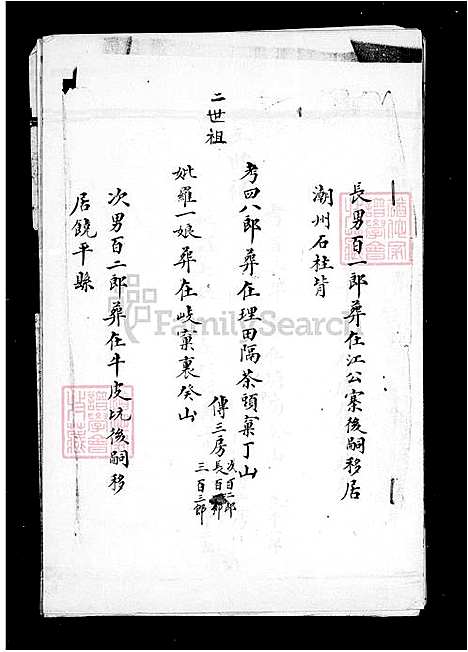 長男百一郎葬在江公寨後嗣移居
潮州石柱背
二世祖
考四八郎葬在理田隔茶頭窠丁山
傳三房
長百一郎
次百二郎
三百三郎
妣羅一娘葬在岐窠裏癸山
次男百二郎葬在牛皮坑後嗣移
居饒平縣
FamilySearch